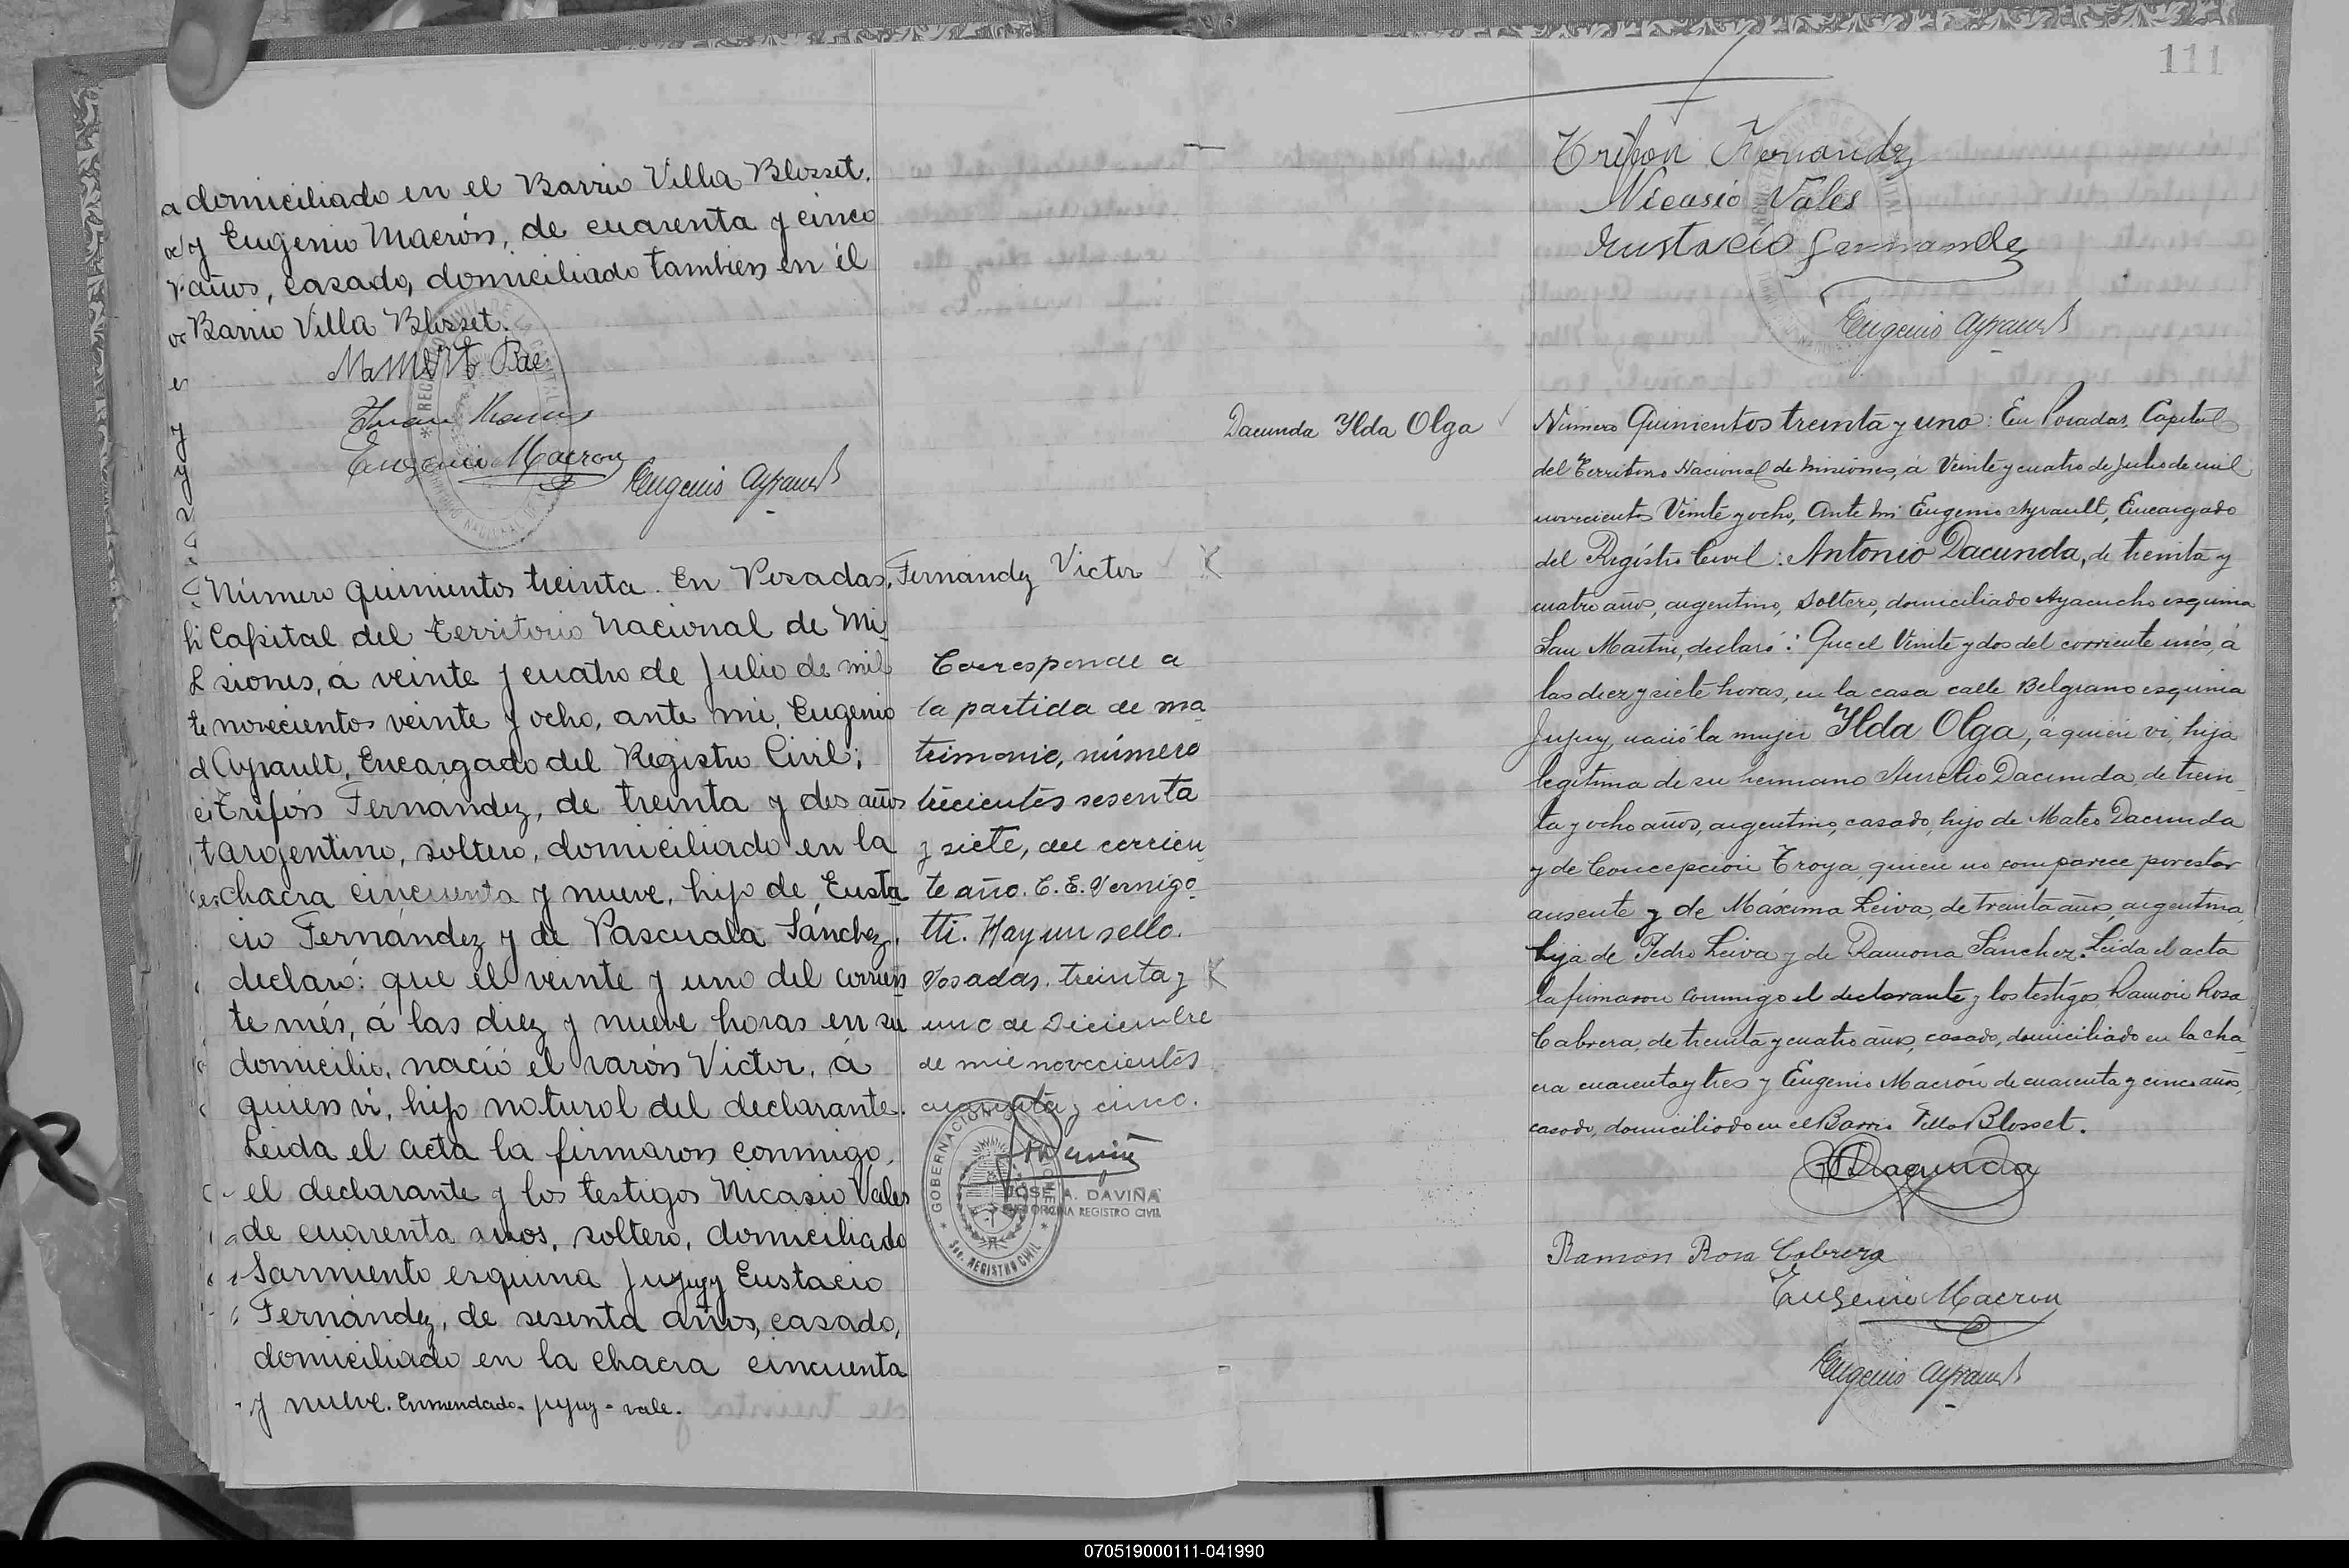 domiciliado en el Barrio Villa Blosset.
y Eugenio Macrón, de cuarenta y cinco
años, casado, domiciliado tambien en él
Barrio Villa Blosset.
Eugenio Macron
Eugenio Ayrault
Número quinientos treinta. En Posadas,
Capital del territorio Nacional de Mi
siones, á veinte y cuatro de Julio de mil
novecientos veinte y ocho, ante mi, Eugenio
Ayrault, Encargado del Registro Civil;
Trifón Fernández, de treinta y dos años
argentino, soltero, domiciliado en la
chacra cincuenta y nueve, hijo de Eusta
cio Fernández y de Pascuala Sánchez,
declaró: que el veinte y uno del corrien
te més, á las diez y nueve horas en su
domicilio, nació el varón Victor, á
quien vi, hijo natural del declarante.
Leida el acta la firmaron conmigo,
el declarante y los testigos Nicasio Vales
de cuarenta años, soltero, domiciliado
Sarmiento esquina Jujuy y Eustacio
Fernández, de sesenta años, casado,
domiciliado en la chacra cincuenta
y nueve. Enmendado - jujuy - vale.
Fernández Victor
Corresponde a
la partida de ma
trimonio, número
trecientos sesenta
y siete, del corrien
te año. C. E. Vernigo
tti. Hay un sello.
Posadas, treinta y
uno de Diciembre
de mil novecientos
cuarenta y cinco.
GOBERNACION
SEC. REGISTRO CIVIL
JOSE A. DAVIÑA
REGISTRO CIVIL
111
Trifon Fernandez
Nicasio Vales
Eustacio Fernandez
Eugenio Ayrault
Dacunda Ylda Olga
Número Quinientos treinta y uno: En Posadas, Capital
del Territorio Nacional de Misiones, á Veinte y cuatro de Julio de mil
novecientos Veinte y ocho, Ante mi Eugenio Ayrault, Encargado
del Registro Civil: Antonio Dacunda, de treinta y
cuatro años, argentino, soltero, domiciliado Ayacucho esquina
San Martin, declaró: Que el Veinte y dos del corriente més, á
las diez y siete horas, en la casa calle Belgrano esquina
Jujuy, nació la mujer Ylda Olga, á quien vi, hija
legitima de su hermano Aurelio Dacunda, de trein
ta y ocho años, argentino, casado, hijo de Mateo Dacunda
y de Concepcion Troya, quien no comparece por estar
ausente y de Máxima Leiva, de treinta años, argentina,
hija de Pedro Leiva y de Ramona Sánchez. Leida el acta
la firmaron conmigo el declarante y los testigos, Ramón Rosa
Cabrera, de treinta y cuatro años, casado, domiciliado en la cha
cra cuarenta y tres y Eugenio Macrón de cuarenta y cinco años,
casado, domiciliado en el Barrio Villa Blosset.
Dacunda
Ramon Rosa Cabrera
Eugenio Macron
Eugenio Ayrault
070519000111-041990